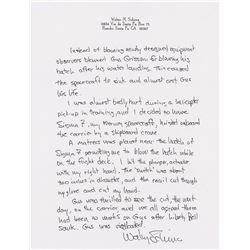 Walter M. Schirra
Rancho Santa Fe CA. 92067
Instead of blaming nearby designed equipment
observers blamed Gus Grissom for blowing his
hatch after his water landing. This caused
the spacecraft to sink and almost cost Gus
his life.
I was almost badly hurt during a helicopter
pick-up in training, and I decided to have
Sigma 7, my Mercury spacecraft, hoisted aboard
the carrier by a shipboard crane.
A mattress was placed near the hatch of
Sigma 7 permitting me to blow the hatch while
on the flight deck. I hit the plunger, actuator
with my right hand. The "switch" was about
two inches in diameter, and the recoil cut through
my glove and cut my hand.
Gus was thrilled to see the cut the next
day, on the carrier and we all agreed there
had been no marks on Gus after Liberty Bell
sank. Gus was vindicated.
Wally Schirra